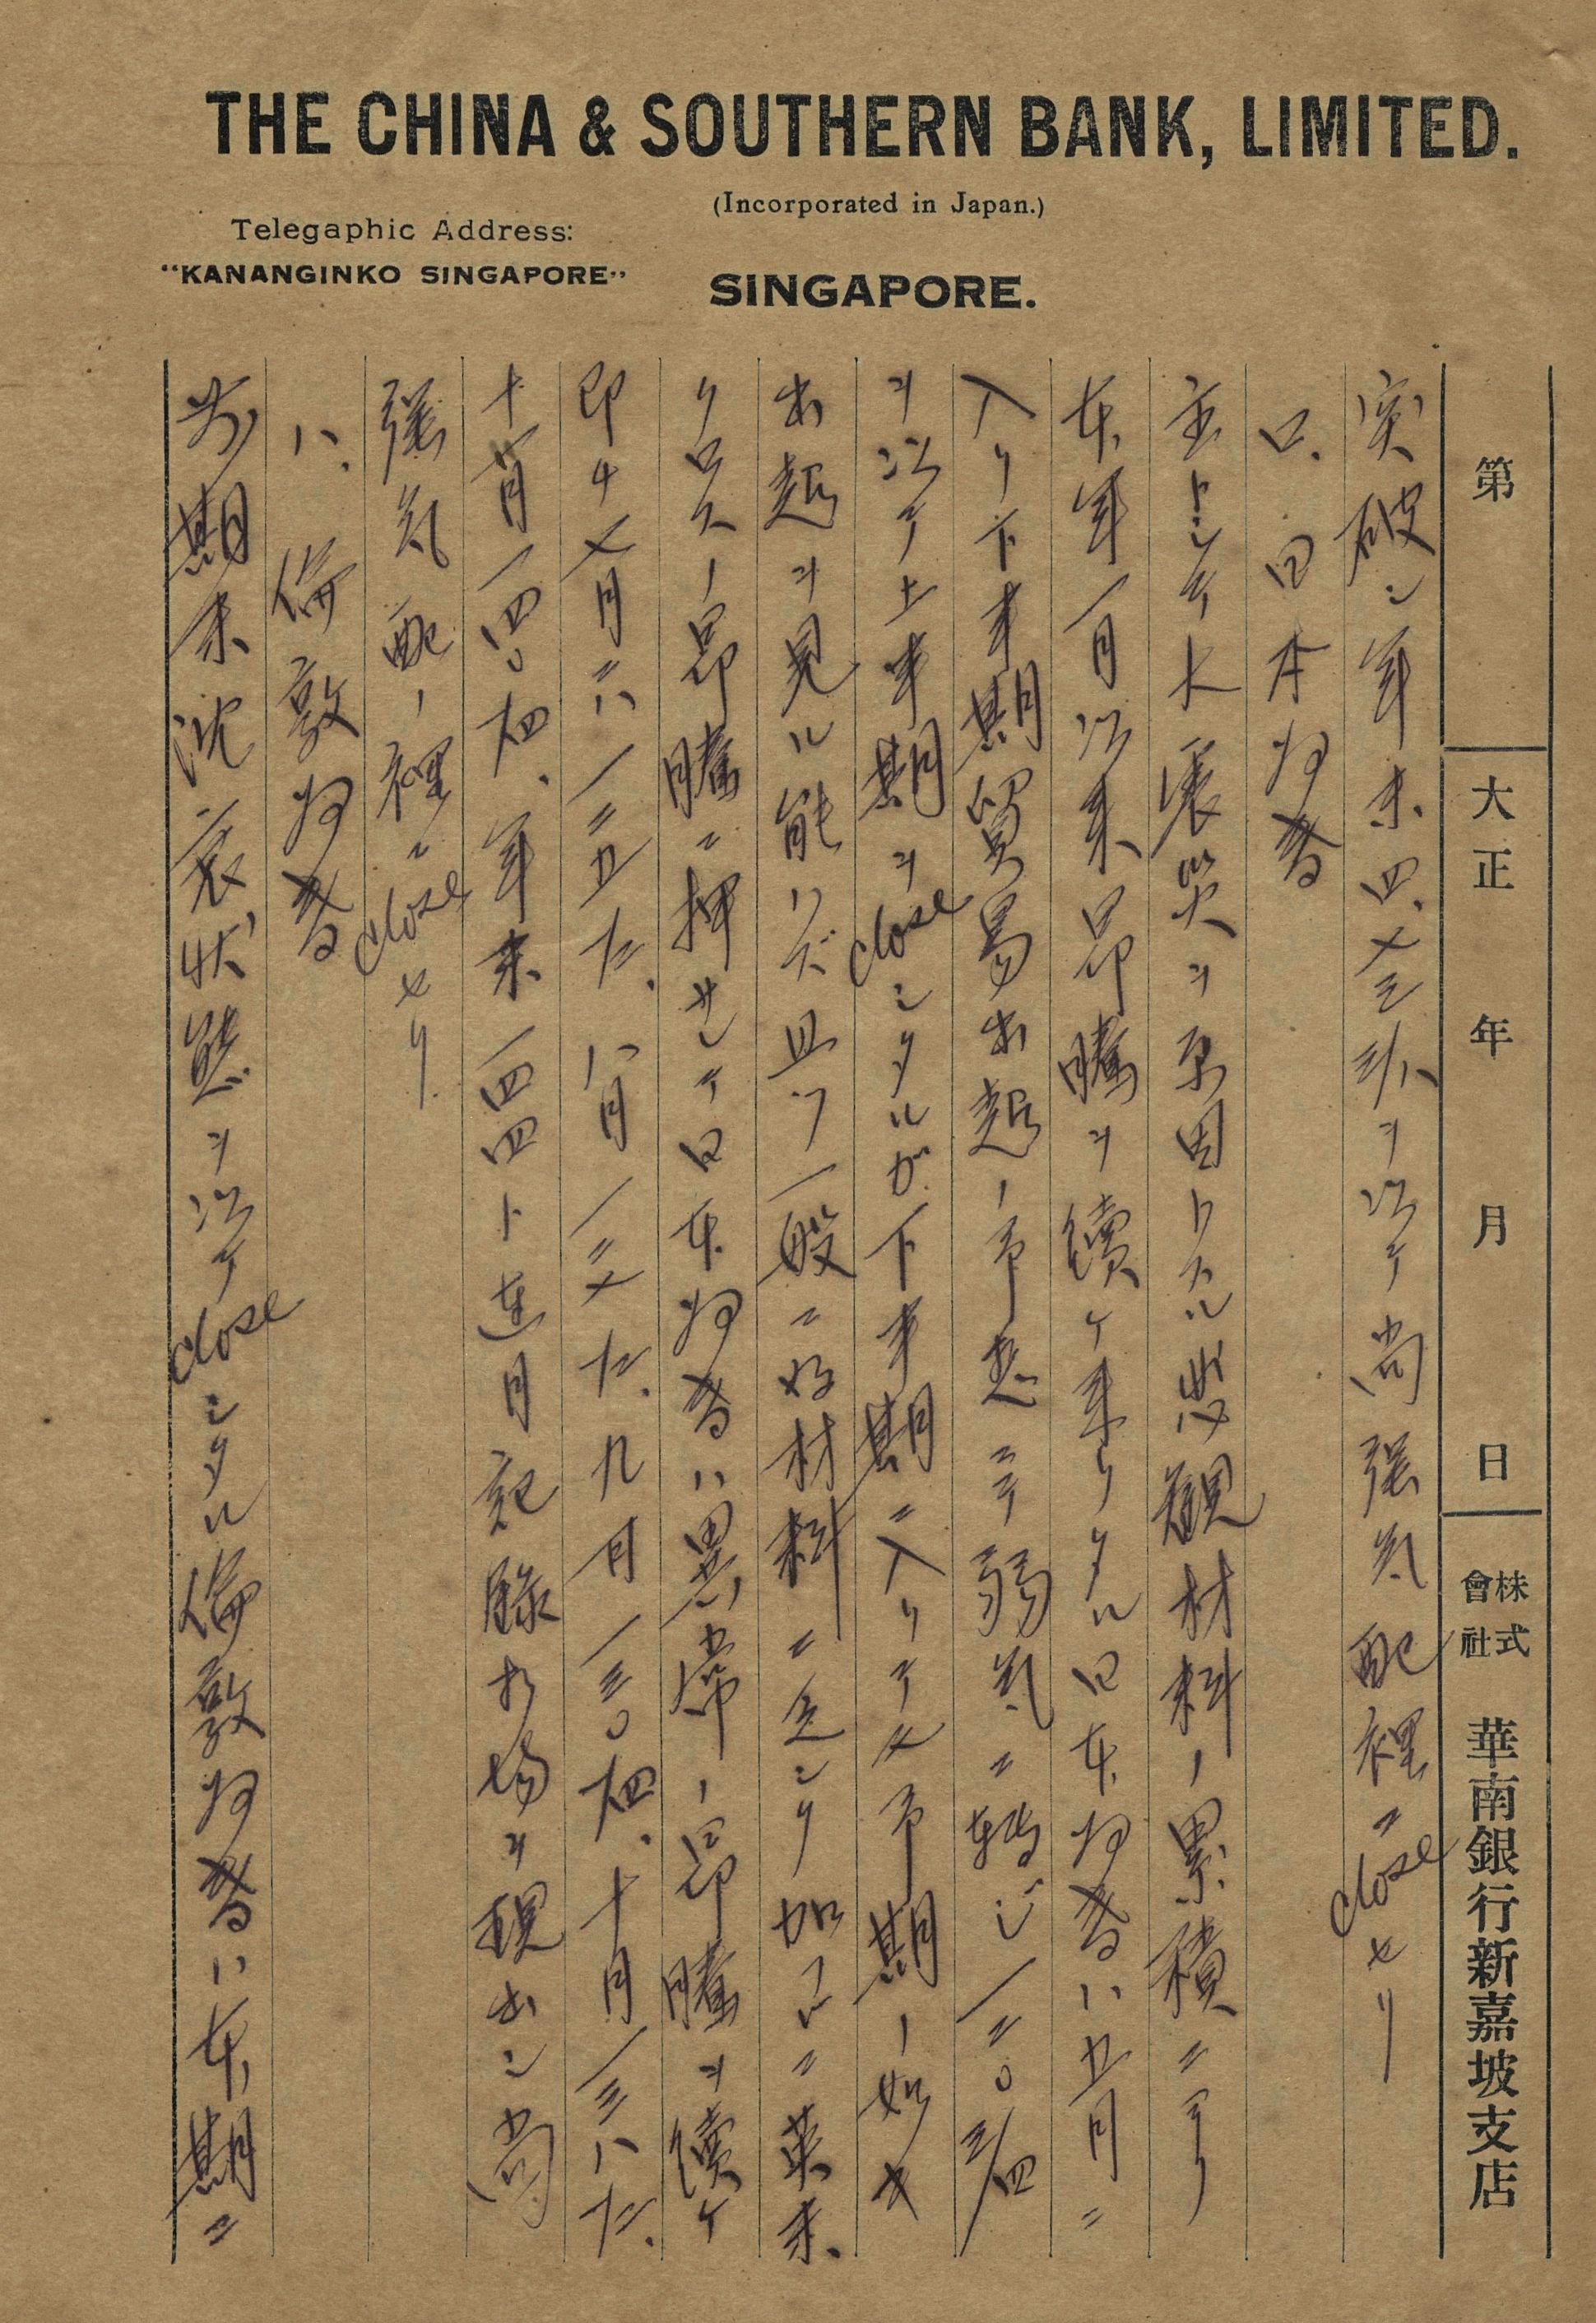 THE CHINA & SOUTHERN BANK, LIMITED.
(Incorporated in Japan.)
Telegaphic Address:
"KANANGINKO SINGAPORE"
SINGAPORE.
第 大正 年 月 日 株式會社 華南銀行新嘉坡支店
突破シ年末四、ヲ以テ尚強気配裡ニcloseセリ
ロ.日本為替
主トシテ大震災ヲ原因トスル悲観材料ノ累積ニヨリ
本年一月以来昂騰ヲ續ケ来リタル日本為替ハ五月ニ
入リ下半期貿易出超ノ予想ニテ弱気ニ転ジ一二〇三/四
ヲ以テ上半期ヲcloseシタルガ下半期ニ入リテハ予期ノ如キ
出超ヲ見ル能ハズ且ツ一般ニ好材料ニ乏シク加フルニ英米
クロスノ昂騰ニ押サレテ日本為替ハ異常ノ昂騰ヲ續ケ
即チ七月ニハ一二五 八月一二七 九月一三〇 十月一三八
十一月一四〇 年末一四四ト連月記録相場ヲ現出シ尚
強気配ノ裡ニcloseセリ
ハ.倫敦為替
前期末沈衰状態ヲ以テcloseシタル倫敦為替ハ本期ニ